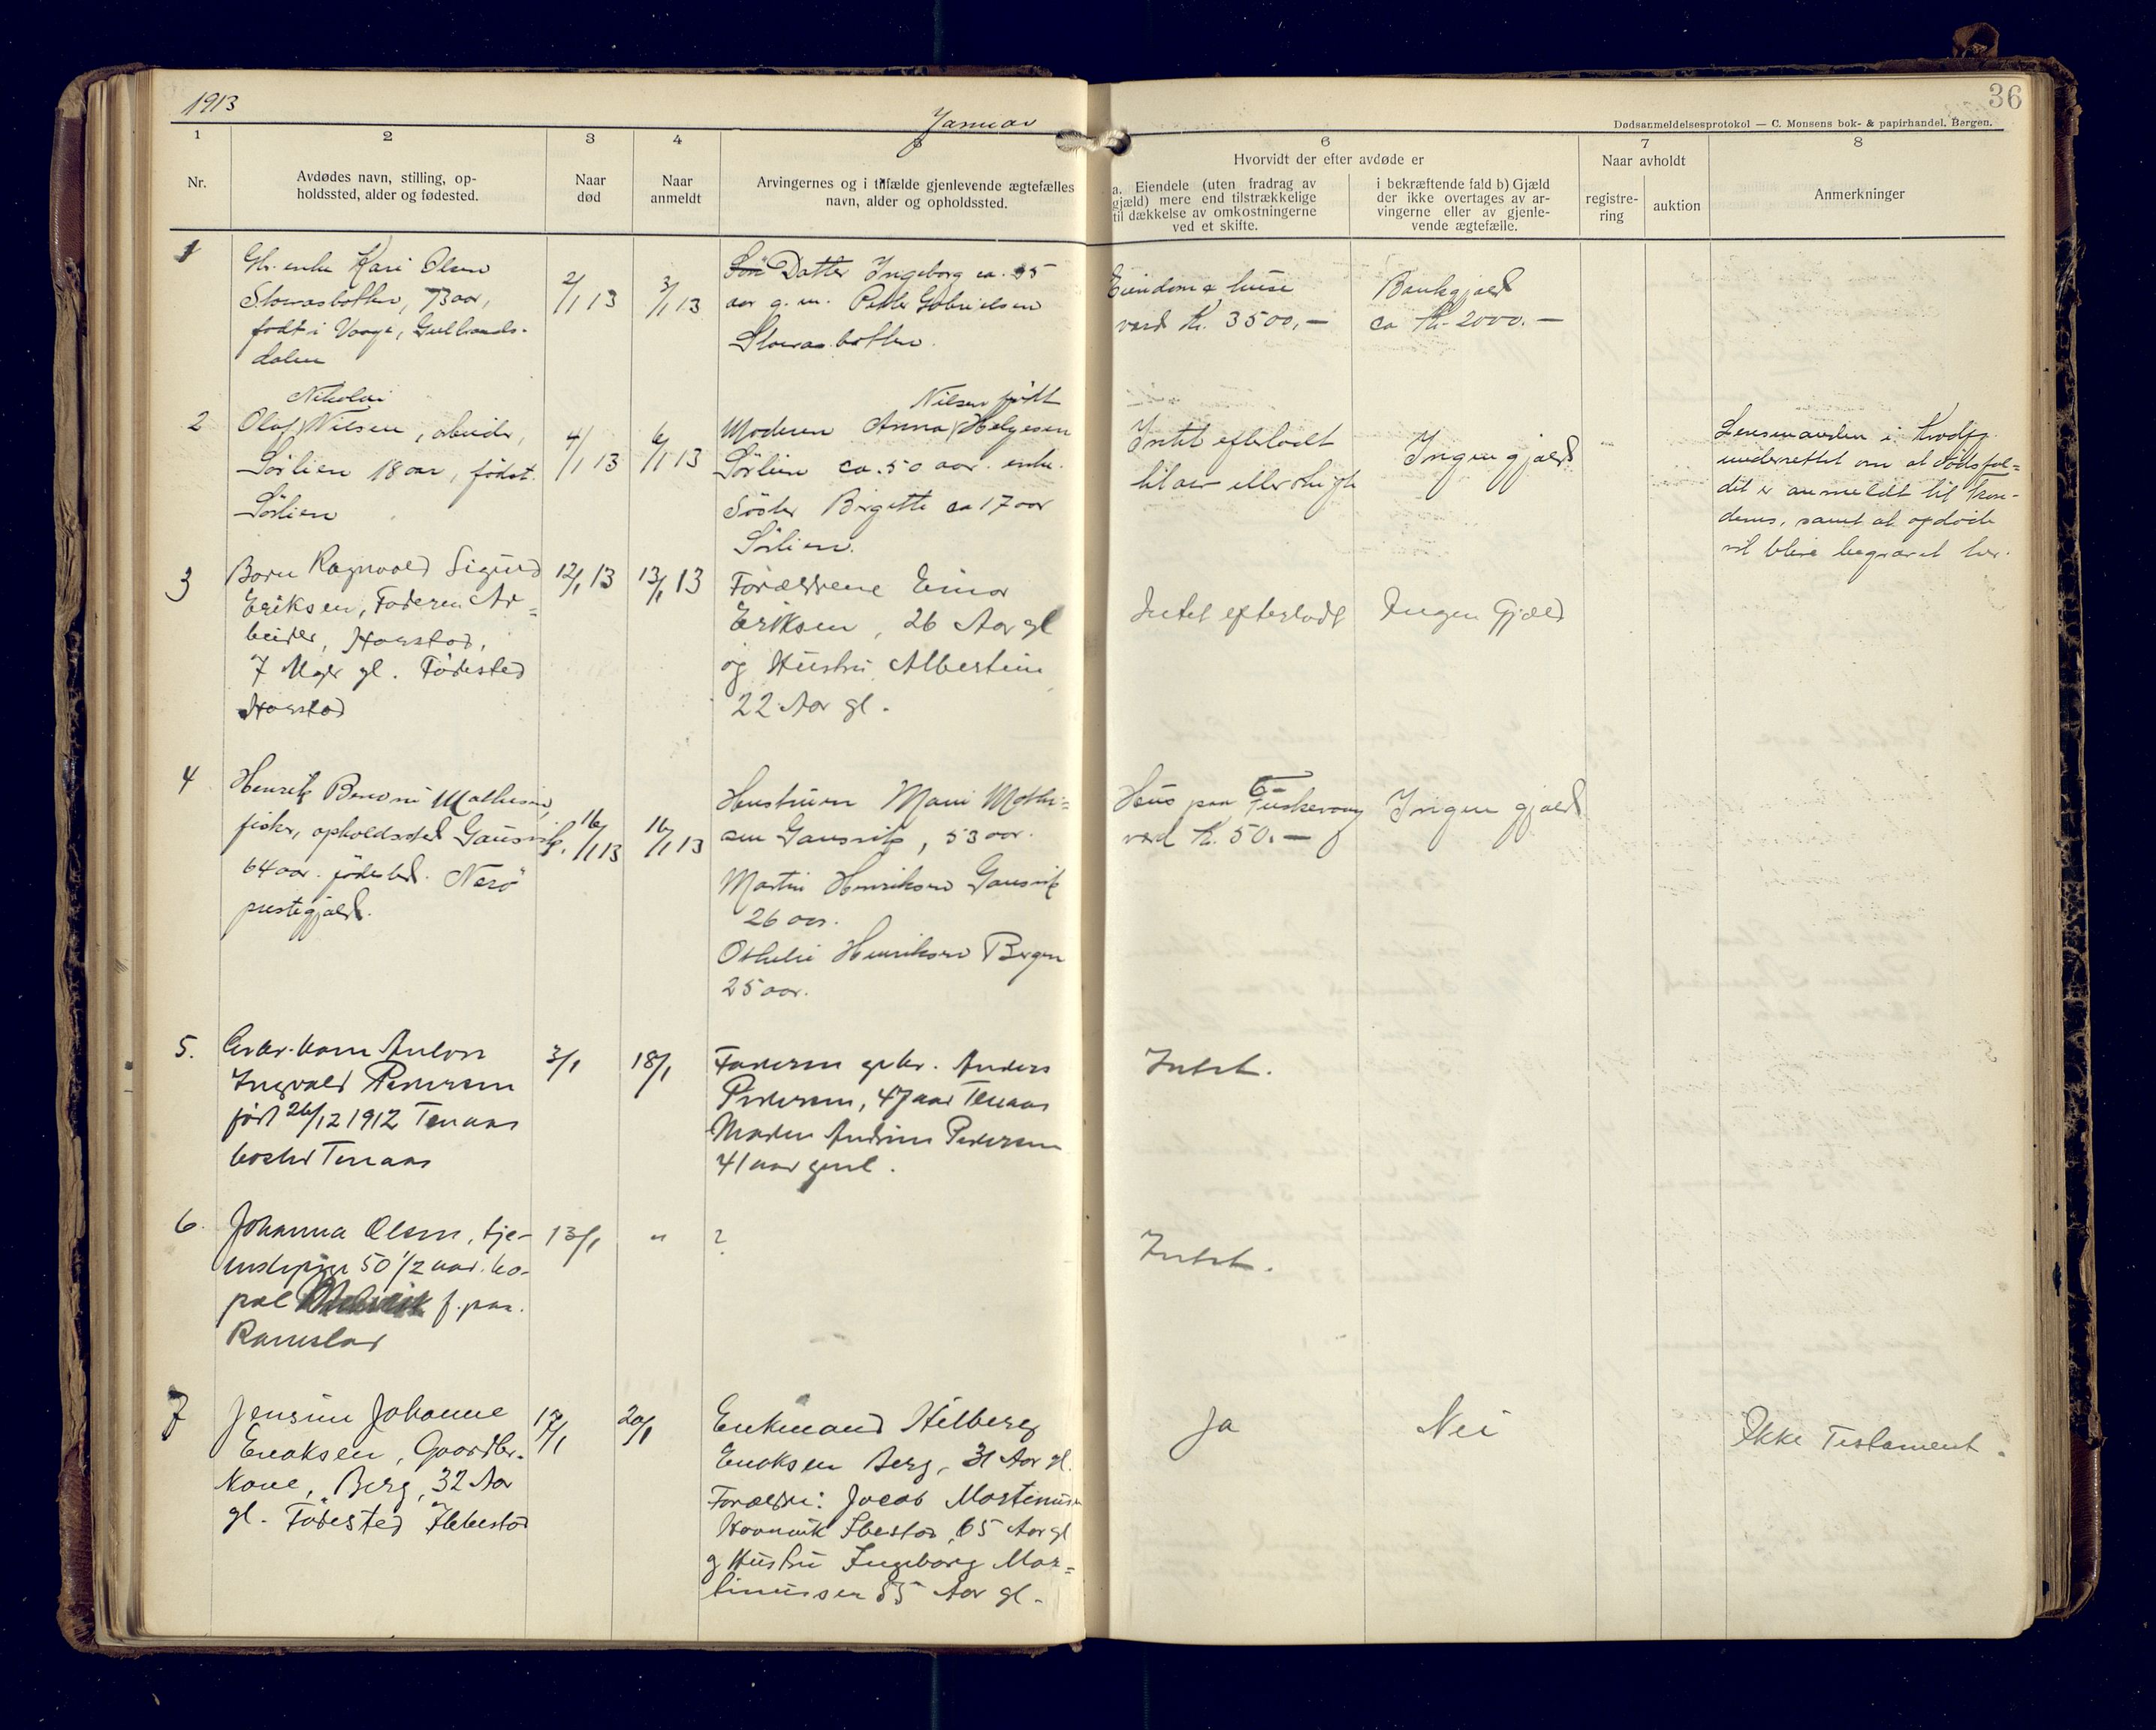 1913
Januar
36
Dødsanmeldelsesprotokol — C. Monsens bok- & papirhandel, Bergen.
1
2
3
4
5
6
7
8
Nr.
Avdødes navn, stilling, op-
holdssted, alder og fødested.
Naar
død
Naar
anmeldt
Arvingernes og i tilfælde gjenlevende ægtefælles
navn, alder og opholdssted.
Hvorvidt der efter avdøde er
a. Eiendele (uten fradrag av
gjæld) mere end tilstrækkelige
til dækkelse av omkostningerne
ved et skifte.
i bekræftende fald b) Gjæld
der ikke overtages av ar-
vingerne eller av gjenle-
vende ægtefælle.
Naar avholdt
registre-
ring
auktion
Anmerkninger
1
enke Kari Olsen
Storvasbotten, 73 aar,
født i Vaage, Gulbrands-
dalen
2/1 13
3/1 13
Søn Datter Ingeborg ca. 35
aar g. m. Petter Gabrielsen
Storvasbotten.
Eiendom & huse
værd kr. 3500,—
Bankgjæld
ca kr 2000.—
2
Nikolai
Olaf Nilsen, arbeider,
Sörlien 18 aar, födest.
Sörlien
4/1 13
6/1 13
Nilsen födt
Moderen Anna Helgesen
Sörlien ca. 50 aar. enke.
Söster Birgitte ca 17 aar
Sörlien.
Intet efterladt
hilav eller
Ingen gjæld
Lensmanden i
underrettet om at dødsfal-
det er anmeldt til Tron-
denes, samt at
vil blive begravet her.
3
Barn Ragnvald Sigurd
Eriksen, Faderen Ar-
beider, Harstad,
7 Mgr gl. Födested
Harstad
12/1 13
13/1 13
Forældrene Einar
Eriksen, 26 Aar gl
og Hustru Albertine
22 Aar gl.
Intet efterladt
Ingen Gjæld
4
Henrik Benoni Mathisen,
fisker, opholdssted Gausvik,
64 aar. födested. Nærö
prestegjæld.
16/1 13
16/1 13
Hustruen Marie Mathi-
sen Gausvik, 53 aar.
Martin Henriksen Gausvik
26 aar.
Othelie Henriksen Bergen
25 aar.
Hus paa
værd kr. 50.—
Ingen gjæld
5.
barn Anton
Ingvald Pedersen
född 26/12 1912 Tenaas
bosted Tenaas
3/1
18/1
Faderen gbr. Anders
Pedersen, 47 aar Tenaas
Moder Andrine Pedersen
41 aar gml.
Intet.
6.
Johanna Olsen, tje-
nestepige 50 1/2 aar. bo-
pæl f. paa.
Ramstad
13/1
"
?
Intet.
7
Jensine Johanne
Enoksen, Gaardbr.
Kone, Berg, 32 Aar
gl. Födested Ibbestad
17/1
20/1
Enkemand Hilberg
Enoksen Berg, 31 Aar gl.
Forældre: Jacob Martinusen
Ibestad, 65 Aar gl
og Hustru Ingeborg Mar-
tinussen 55 Aar gl.
Ja
Nei
Ikke Testament.